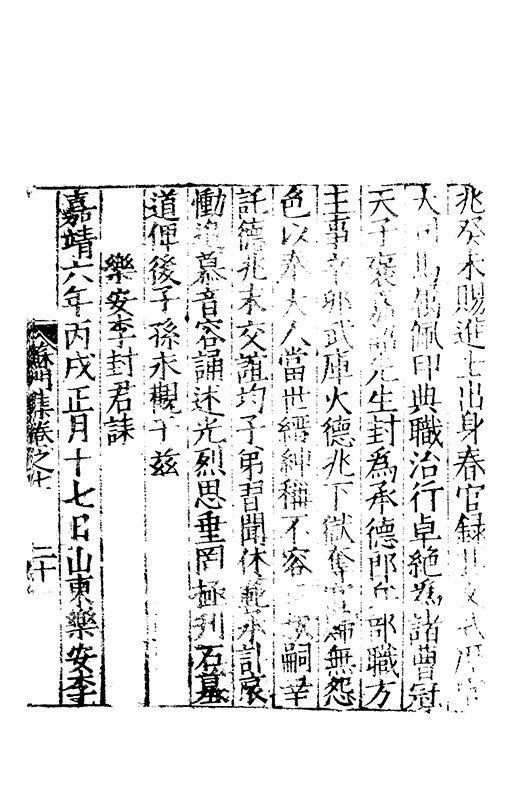 兆癸未賜進士出身春官録
大司馬佩印典職治行卓絶為諸曹冠
天子褒先生封為承德郎兵部職方
主事辛卯武庫火德兆下獄奪官歸無怨
色以奉大人當世縉紳稱不容嗣辛
託德兆末交誼均子弟習聞休範承訃哀
慟追慕音容誦述光烈思垂罔極列石墓
道俾後子孫永觀于兹
樂安李封君誄
嘉靖六年丙戌正月十七日山東樂安李
蘇門集卷之七
二十